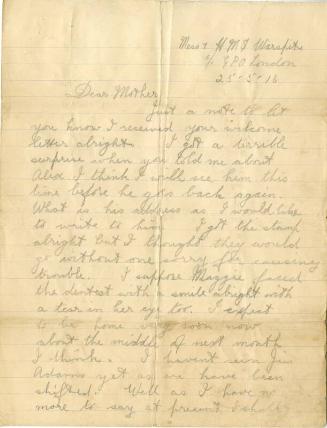 Mess 2 H.M.S Warspite
c/o G.P.O London
25-5-16
Dear Mother
Just a note to let
you know I received your welcome
letter alright I got a terrible
surprise when you told me about
Alex I think I will see him this
time before he goes back again.
What is his address as I would like
to write to him I got the stamp
alright but I thought they would
go without one sorry for causing
trouble. I suppose Maggie faced
the dentest with a smile alright with
a tear in her eye too. I expect
to be home very soon now
about the middle of next month
I think. I havent seen Jim
Adams yet as we have been
shifted. Well as I have no
more to say at present I shall